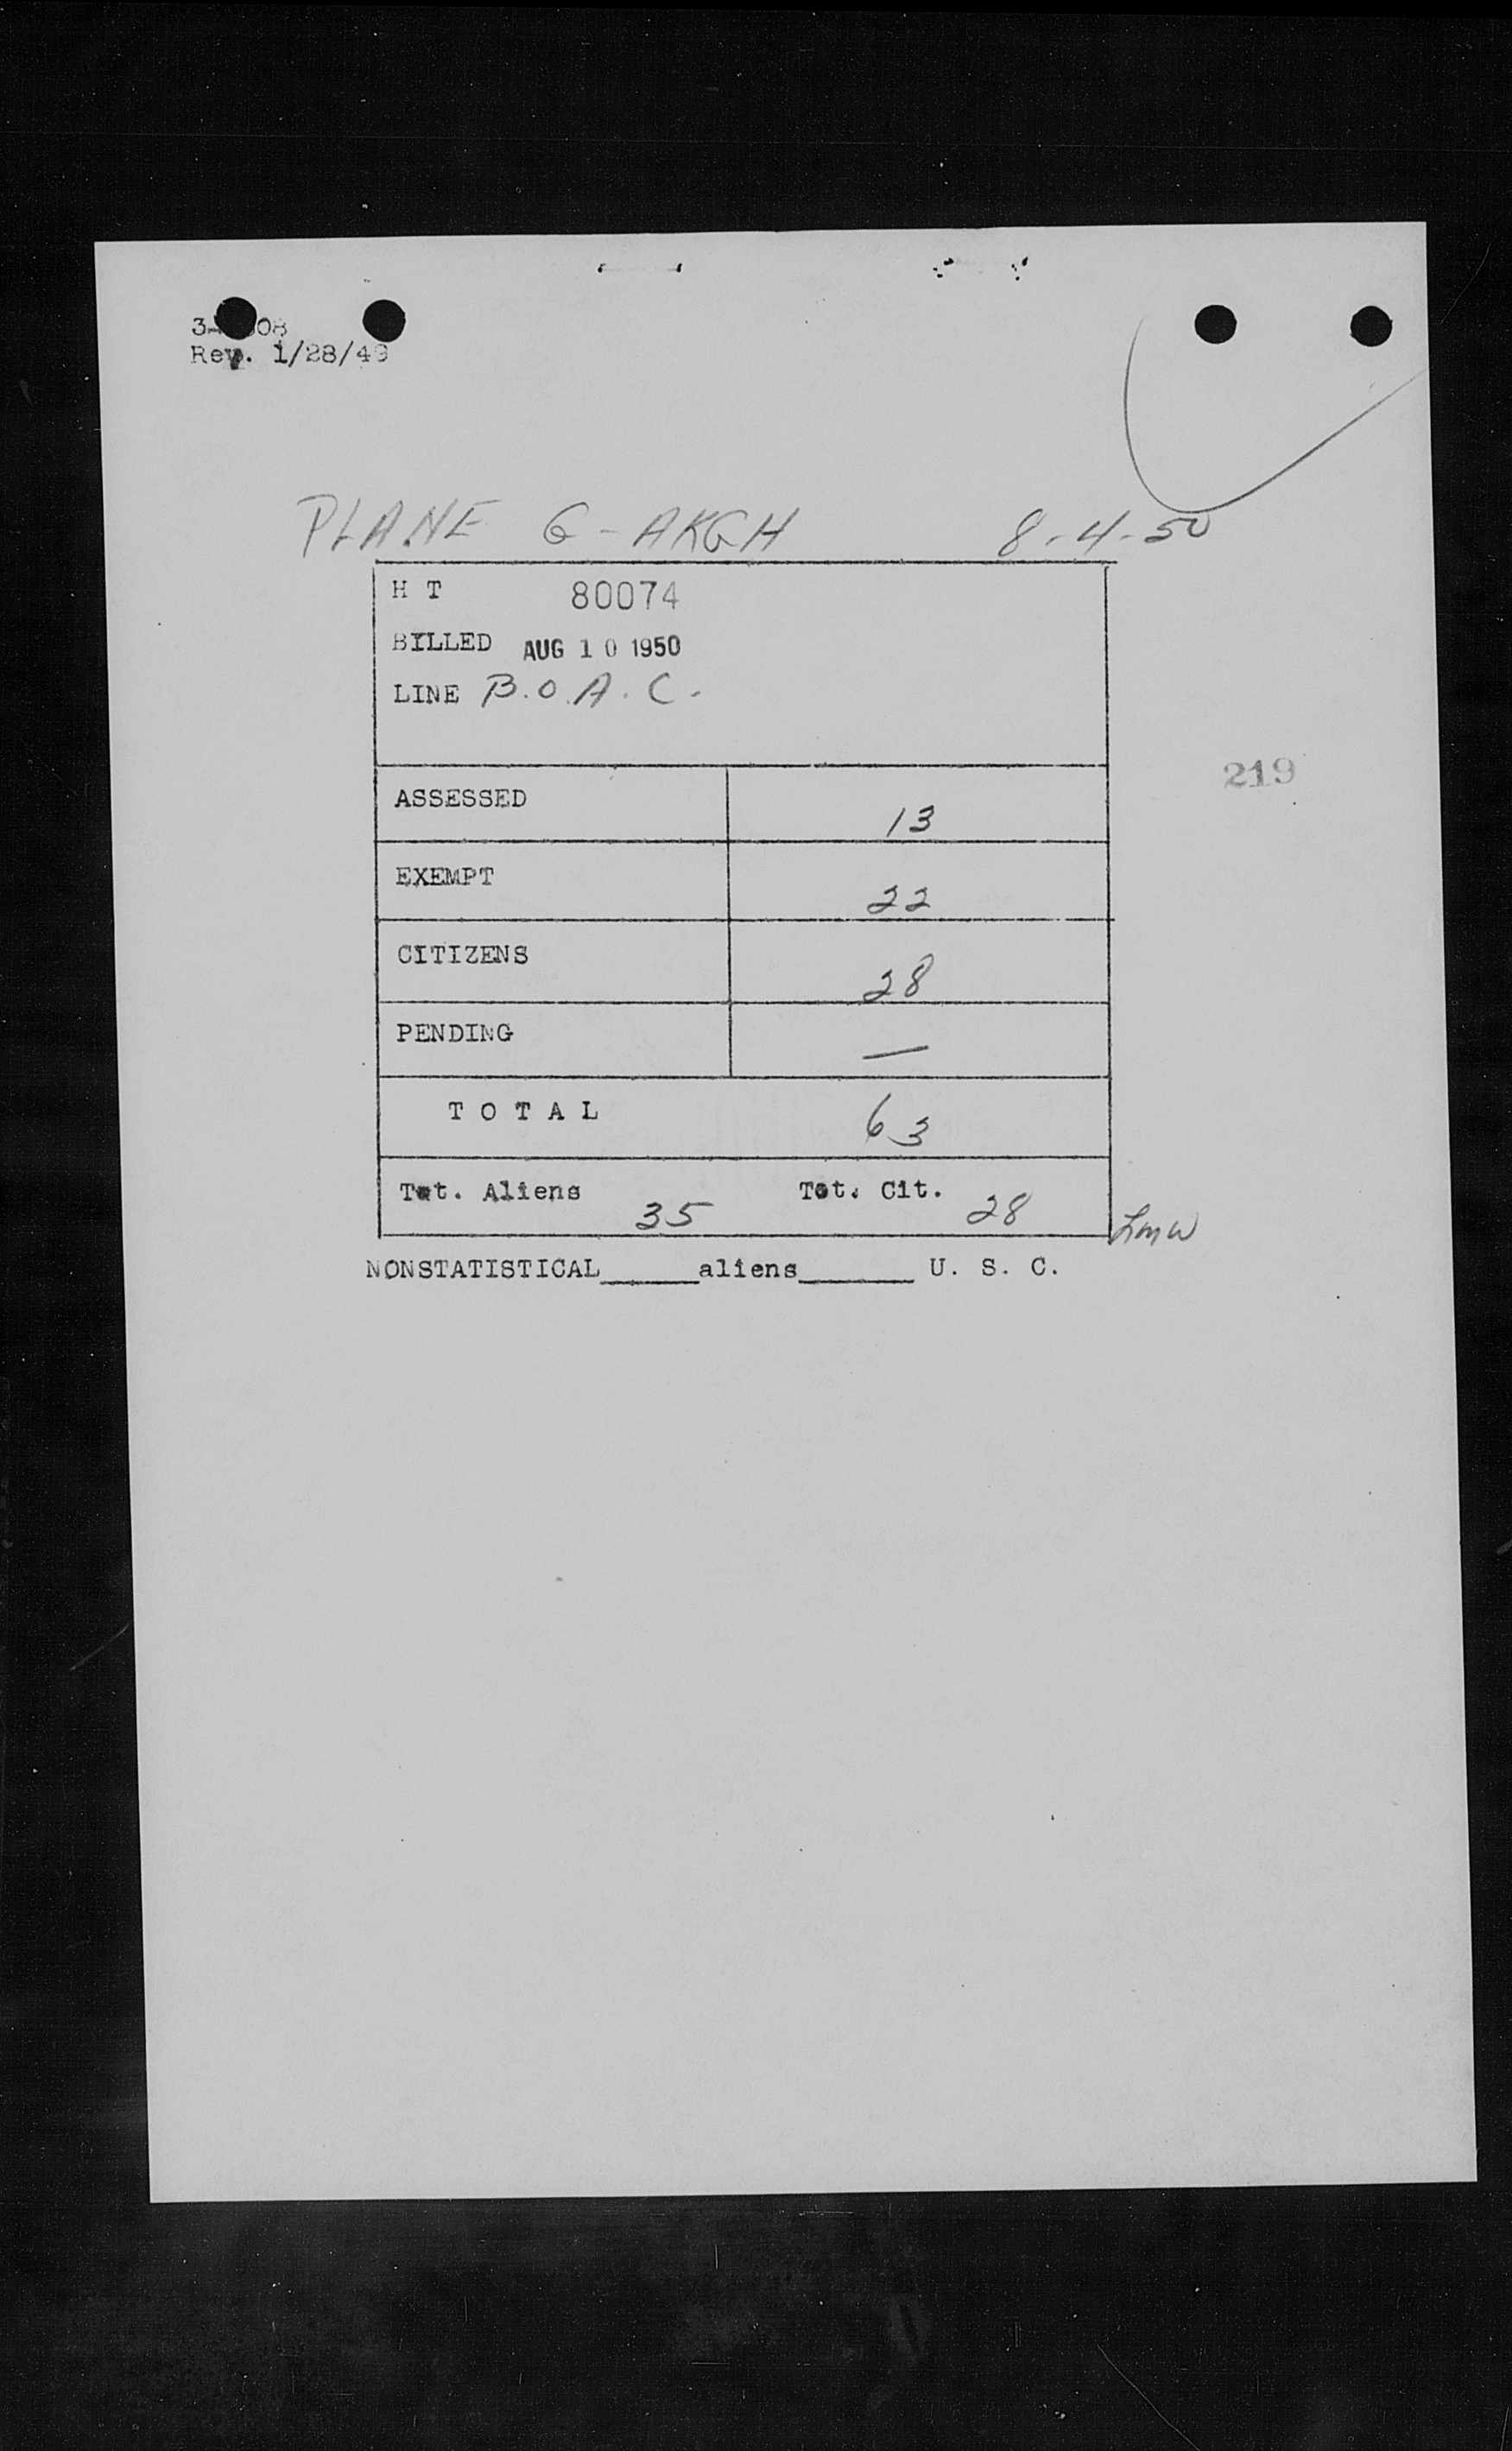 Rev. 1/28/49
PLANE G-AKGH 8-4-50
H T 80074
BILLED AUG 10 1950
LINE B.O.A.C.
219
ASSESSED 13
EXEMPT 22
CITIZENS 28
PENDING —
T O T A L 63
Tot. Aliens 35 Tot. Cit. 28
LMW
NONSTATISTICAL______aliens_______ U. S. C.